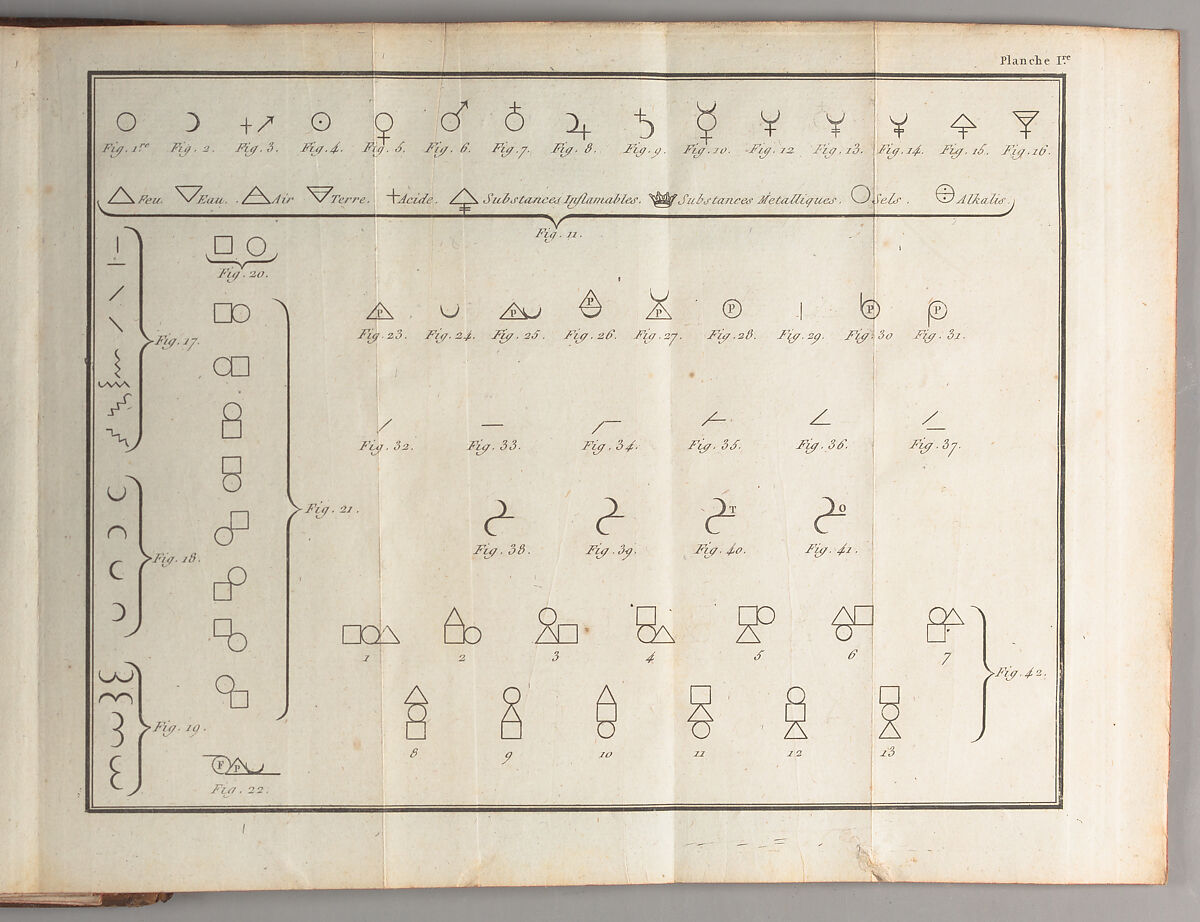 Planche I.re
Fig. 1re Fig. 2. Fig. 3. Fig. 4. Fig. 5. Fig. 6. Fig. 7. Fig. 8. Fig. 9. Fig. 10. Fig. 12 Fig. 13. Fig. 14. Fig. 15. Fig. 16.
Feu. Eau. Air Terre. Acide. Substances Inflamables. Substances Metalliques. Sels. Alkalis.
Fig. 11.
Fig. 17.
Fig. 18.
Fig. 19.
Fig. 20.
Fig. 21.
F P
Fig. 22.
P P P P P P P
Fig. 23. Fig. 24. Fig. 25. Fig. 26. Fig. 27. Fig. 28. Fig. 29. Fig. 30 Fig. 31.
Fig. 32. Fig. 33. Fig. 34. Fig. 35. Fig. 36. Fig. 37.
T O
Fig. 38. Fig. 39. Fig. 40. Fig. 41.
1 2 3 4 5 6 7
8 9 10 11 12 13
Fig. 42.